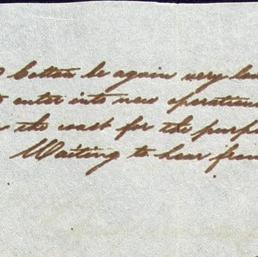 Cotton be again very low
enter into new operations
the coast for the purp
Waiting to hear from